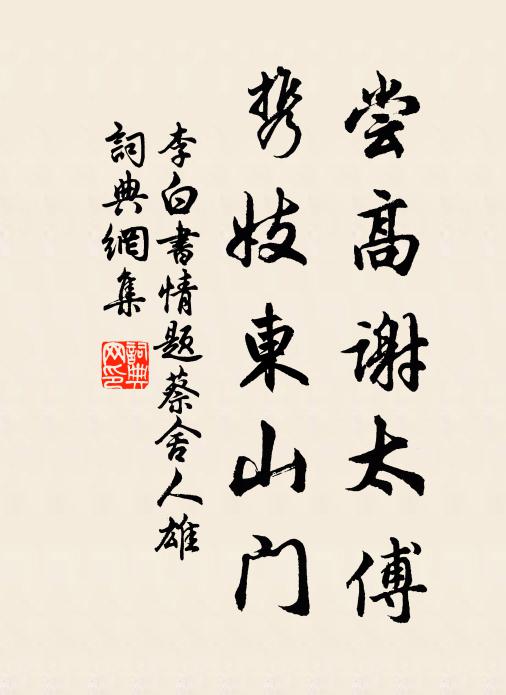 尝高谢太傅
携妓東山门
李白書情题蔡舍人雄
詞典網集
詞典网印